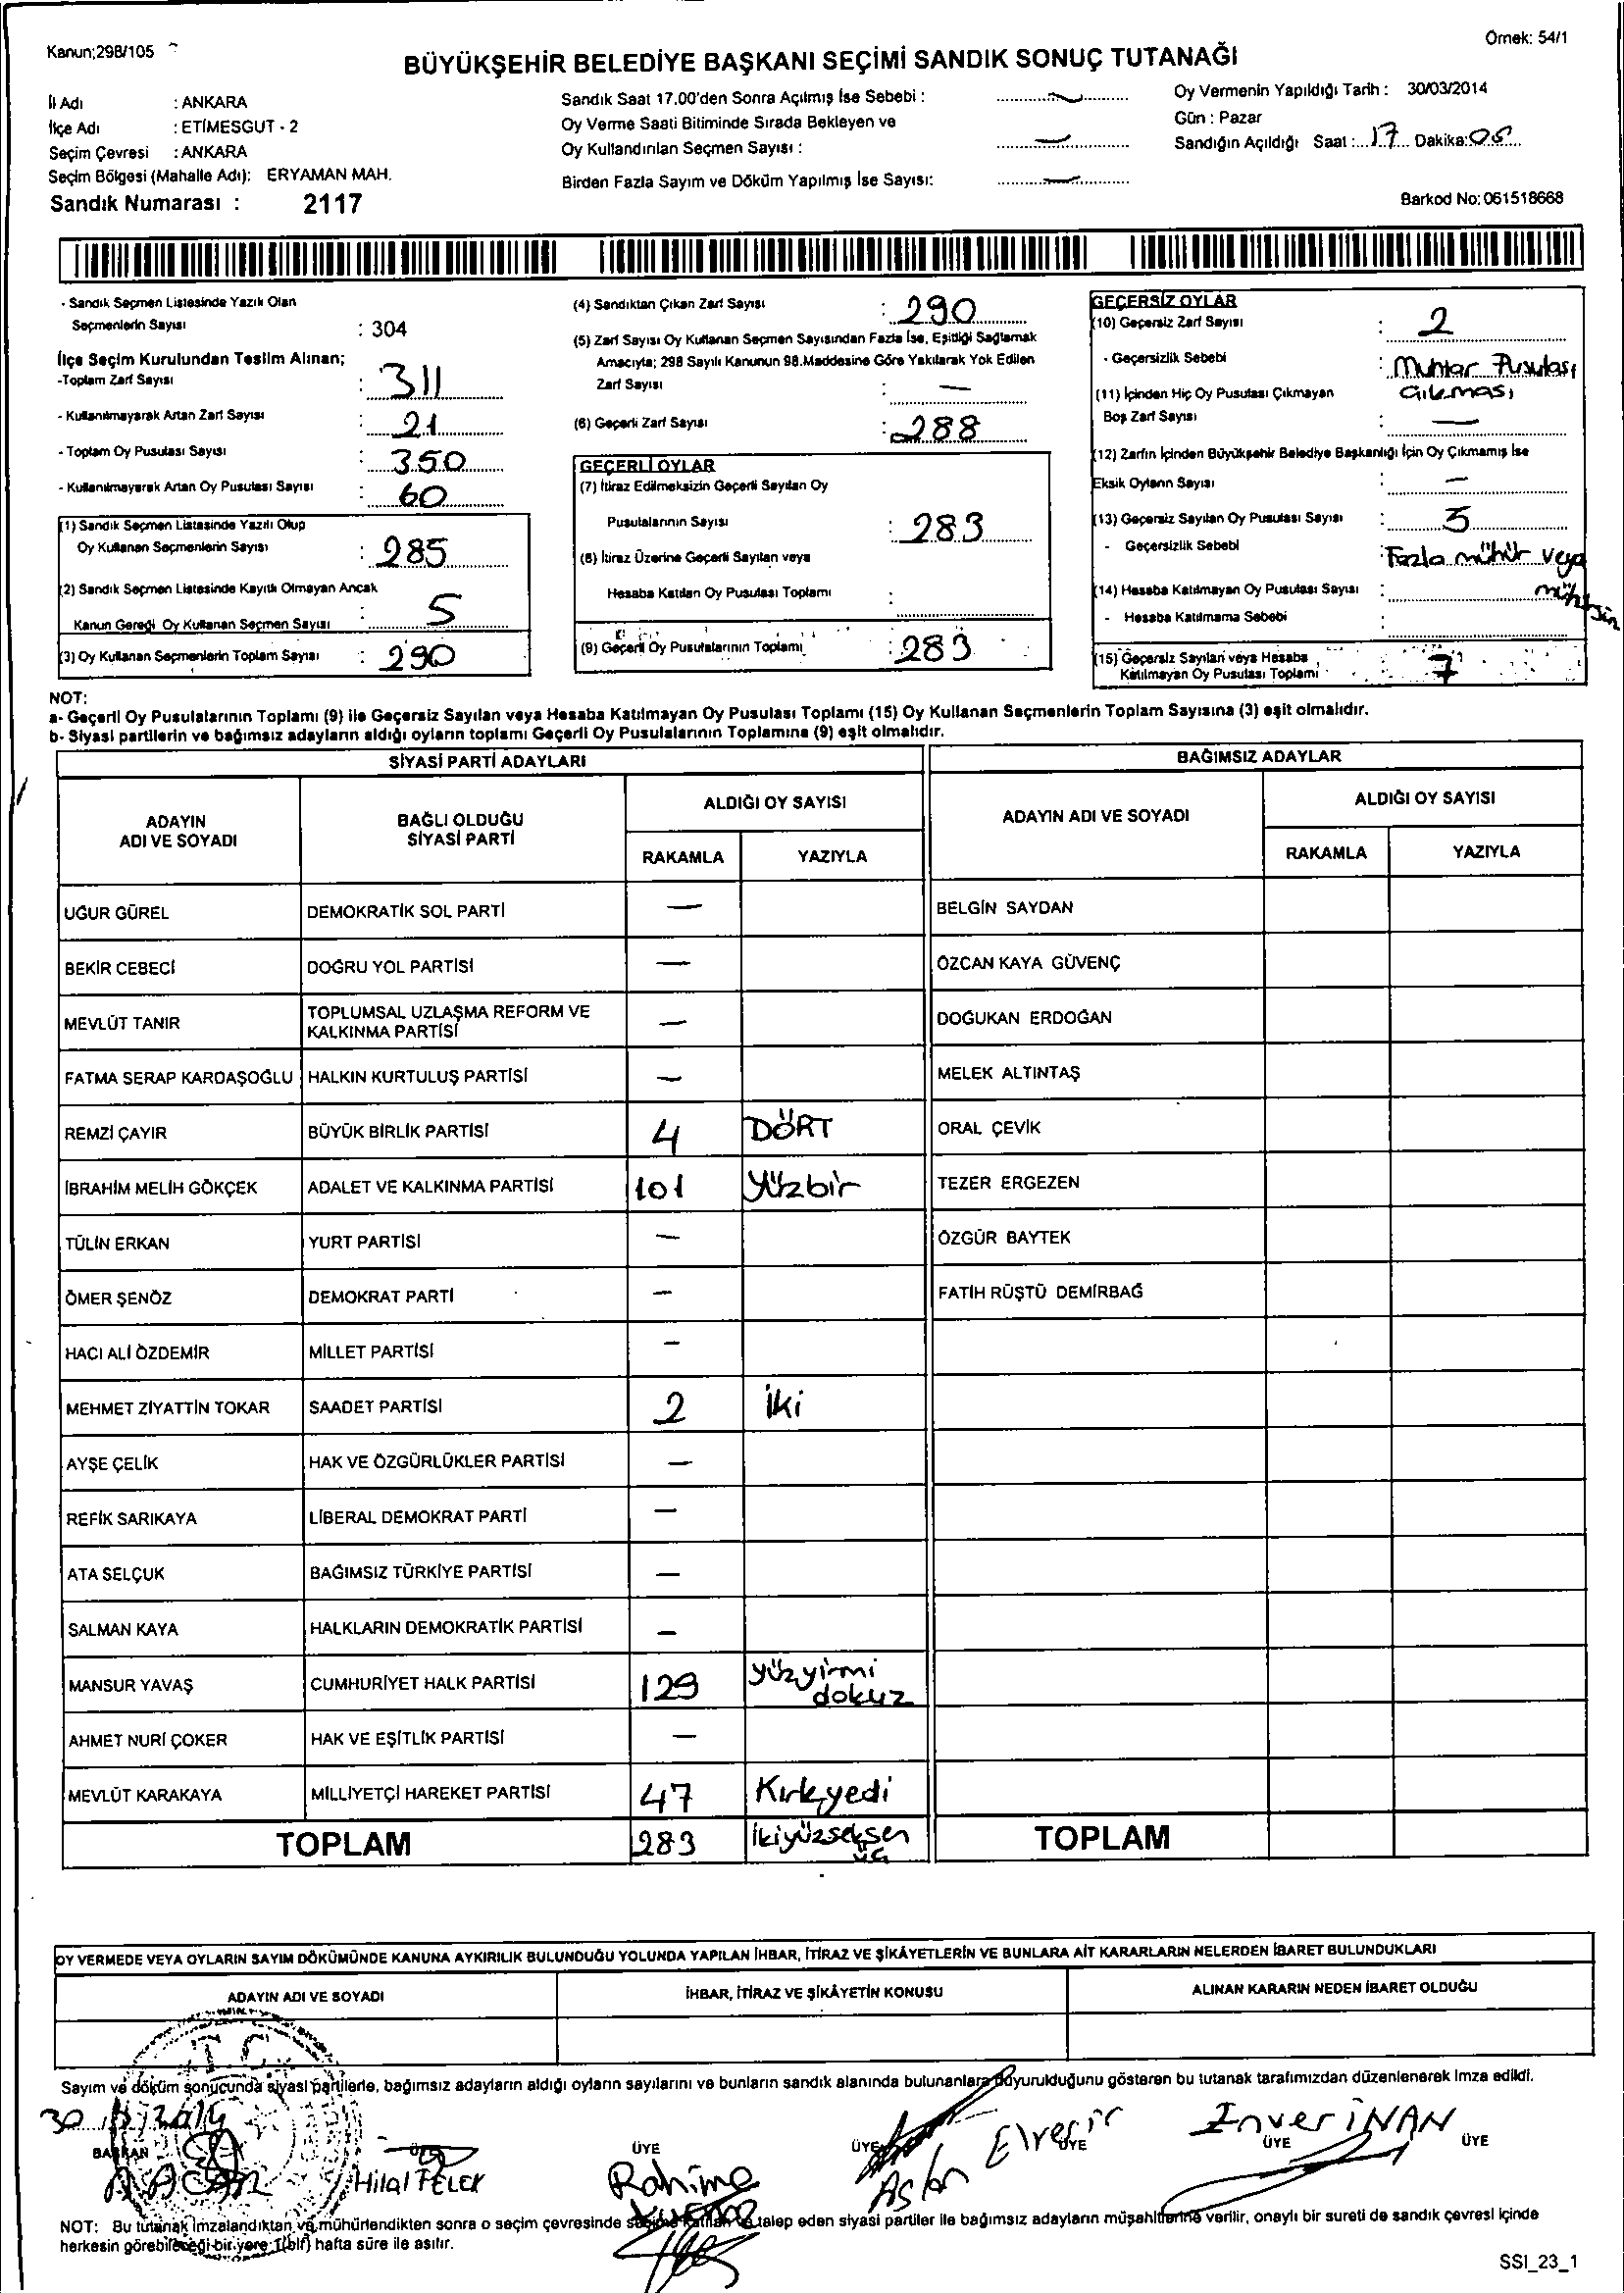 Kanun;298/105
Örnek: 54/1
BÜYÜKŞEHİR BELEDİYE BAŞKANI SEÇİMİ SANDIK SONUÇ TUTANAĞI
İl Adı : ANKARA
İlçe Adı : ETİMESGUT - 2
Seçim Çevresi : ANKARA
Seçim Bölgesi (Mahalle Adı): ERYAMAN MAH.
Sandık Numarası : 2117
Sandık Saat 17.00'den Sonra Açılmış İse Sebebi : —
Oy Verme Saati Bitiminde Sırada Bekleyen ve
Oy Kullandırılan Seçmen Sayısı : —
Birden Fazla Sayım ve Döküm Yapılmış İse Sayısı: —
Oy Vermenin Yapıldığı Tarih : 30/03/2014
Gün : Pazar
Sandığın Açıldığı Saat : 17 Dakika: 05
Barkod No: 061518668
- Sandık Seçmen Listesinde Yazılı Olan
Seçmenlerin Sayısı : 304
İlçe Seçim Kurulundan Teslim Alınan;
-Toplam Zarf Sayısı : 311
- Kullanılmayarak Artan Zarf Sayısı : 21
- Toplam Oy Pusulası Sayısı : 350
- Kullanılmayarak Artan Oy Pusulası Sayısı : 60
(1) Sandık Seçmen Listesinde Yazılı Olup
Oy Kullanan Seçmenlerin Sayısı : 285
(2) Sandık Seçmen Listesinde Kayıtlı Olmayan Ancak
Kanun Gereği Oy Kullanan Seçmen Sayısı : 5
(3) Oy Kullanan Seçmenlerin Toplam Sayısı : 290
(4) Sandıktan Çıkan Zarf Sayısı : 290
(5) Zarf Sayısı Oy Kullanan Seçmen Sayısından Fazla İse, Eşitliği Sağlamak
Amacıyla; 298 Sayılı Kanunun 98.Maddesine Göre Yakılarak Yok Edilen
Zarf Sayısı : —
(6) Geçerli Zarf Sayısı : 288
GEÇERLİ OYLAR
(7) İtiraz Edilmeksizin Geçerli Sayılan Oy
Pusulalarının Sayısı : 283
(8) İtiraz Üzerine Geçerli Sayılan veya
Hesaba Katılan Oy Pusulası Toplamı :
(9) Geçerli Oy Pusulalarının Toplamı : 283
GEÇERSİZ OYLAR
(10) Geçersiz Zarf Sayısı : 2
- Geçersizlik Sebebi : Muhtar Pusulası
çıkması
(11) İçinden Hiç Oy Pusulası Çıkmayan
Boş Zarf Sayısı : —
(12) Zarfın İçinden Büyükşehir Belediye Başkanlığı İçin Oy Çıkmamış İse
Eksik Oyların Sayısı : —
(13) Geçersiz Sayılan Oy Pusulası Sayısı : 5
- Geçersizlik Sebebi : Fazla mühür veya
mühürsüz
(14) Hesaba Katılmayan Oy Pusulası Sayısı :
- Hesaba Katılmama Sebebi :
(15) Geçersiz Sayılan veya Hesaba
Katılmayan Oy Pusulası Toplamı : 7
NOT:
a- Geçerli Oy Pusulalarının Toplamı (9) ile Geçersiz Sayılan veya Hesaba Katılmayan Oy Pusulası Toplamı (15) Oy Kullanan Seçmenlerin Toplam Sayısına (3) eşit olmalıdır.
b- Siyasi partilerin ve bağımsız adayların aldığı oyların toplamı Geçerli Oy Pusulalarının Toplamına (9) eşit olmalıdır.
SİYASİ PARTİ ADAYLARI
BAĞIMSIZ ADAYLAR
ADAYIN ADI VE SOYADI
BAĞLI OLDUĞU SİYASİ PARTİ
ALDIĞI OY SAYISI
RAKAMLA YAZIYLA
ADAYIN ADI VE SOYADI
ALDIĞI OY SAYISI
RAKAMLA YAZIYLA
UĞUR GÜREL DEMOKRATİK SOL PARTİ — BELGİN SAYDAN
BEKİR CEBECİ DOĞRU YOL PARTİSİ — ÖZCAN KAYA GÜVENÇ
MEVLÜT TANIR TOPLUMSAL UZLAŞMA REFORM VE KALKINMA PARTİSİ — DOĞUKAN ERDOĞAN
FATMA SERAP KARDAŞOĞLU HALKIN KURTULUŞ PARTİSİ — MELEK ALTINTAŞ
REMZİ ÇAYIR BÜYÜK BİRLİK PARTİSİ 4 DÖRT ORAL ÇEVİK
İBRAHİM MELİH GÖKÇEK ADALET VE KALKINMA PARTİSİ 101 Yüzbir TEZER ERGEZEN
TÜLİN ERKAN YURT PARTİSİ — ÖZGÜR BAYTEK
ÖMER ŞENÖZ DEMOKRAT PARTİ — FATİH RÜŞTÜ DEMİRBAĞ
HACI ALİ ÖZDEMİR MİLLET PARTİSİ —
MEHMET ZİYATTİN TOKAR SAADET PARTİSİ 2 İki
AYŞE ÇELİK HAK VE ÖZGÜRLÜKLER PARTİSİ —
REFİK SARIKAYA LİBERAL DEMOKRAT PARTİ —
ATA SELÇUK BAĞIMSIZ TÜRKİYE PARTİSİ —
SALMAN KAYA HALKLARIN DEMOKRATİK PARTİSİ —
MANSUR YAVAŞ CUMHURİYET HALK PARTİSİ 129 yüzyirmi dokuz
AHMET NURİ ÇOKER HAK VE EŞİTLİK PARTİSİ —
MEVLÜT KARAKAYA MİLLİYETÇİ HAREKET PARTİSİ 47 Kırkyedi
TOPLAM 283 İkiyüzseksen üç TOPLAM
OY VERMEDE VEYA OYLARIN SAYIM DÖKÜMÜNDE KANUNA AYKIRILIK BULUNDUĞU YOLUNDA YAPILAN İHBAR, İTİRAZ VE ŞİKÂYETLERİN VE BUNLARA AİT KARARLARIN NELERDEN İBARET BULUNDUKLARI
ADAYIN ADI VE SOYADI İHBAR, İTİRAZ VE ŞİKÂYETİN KONUSU ALINAN KARARIN NEDEN İBARET OLDUĞU
T.C.
Sayım ve döküm sonucunda siyasi partilerle, bağımsız adayların aldığı oyların sayılarını ve bunların sandık alanında bulunanlara duyurulduğunu gösteren bu tutanak tarafımızdan düzenlenerek imza edildi.
BAŞKAN ÜYE ÜYE ÜYE ÜYE ÜYE ÜYE
Hilal PELEK Rahime Aslan Elveşir Enver İNAN
NOT: Bu tutanak imzalandıktan ve mühürlendikten sonra o seçim çevresinde seçime katılan ve talep eden siyasi partiler ile bağımsız adayların müşahitlerine verilir, onaylı bir sureti de sandık çevresi içinde
herkesin görebileceği bir yere 1(bir) hafta süre ile asılır.
SSI_23_1